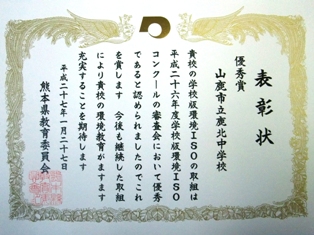 表彰状
優秀賞
山鹿市立鹿北中学校
貴校の学校版環境ISOの取組は
平成二十六年度学校版環境ISO
コンクールの審査会において優秀
であると認められましたのでこれ
を賞します 今後も継続した取組
により貴校の環境教育がますます
充実することを期待します
平成二十七年一月二十七日
熊本県教育委員会